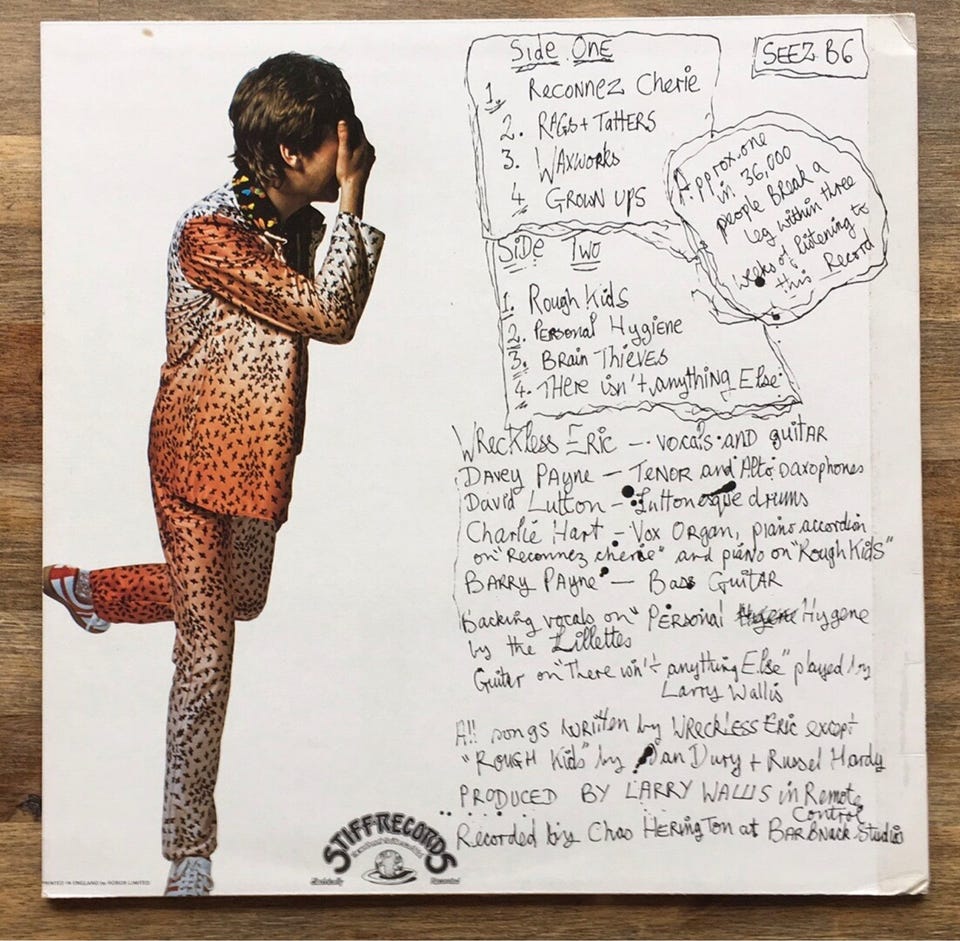 Side One
1. Reconnez Cherie
2. RAGS + TATTERS
3. WAXWORKS
4. GROWN UPS
SEEZ B6
Approx.one
in 36,000
people Break a
Leg within three
weeks of listening to
this Record
SiDe Two
1. Rough KidS
2. Personal Hygiene
3. BRAIN THIEVES
4. THere isn't anything Else
WReckless ERic – vocals and guitar
Davey Payne – TENOR and Alto saxophones
David Lutton – Luttonesque drums
Charlie Hart – Vox Organ, piano accordion
on "Reconnez cherie" and piano on "Rough KidS"
BARRY PAYNE – Bass GuitAR
Backing vocals on "PERsonal Hygene
by the Lillettes
Guitar on "There isn't anything Else" played by
Larry Wallis
All songs written by WReckless ERic except
"ROUGH Kids" by Ian Dury + Russel Hardy
PRODUCED BY LARRY WALLIS in Remote
Control
Recorded by Chas HERINGTON at BARBNACK Studios
STIFF RECORDS
PRINTED IN ENGLAND by ROBOR LIMITED